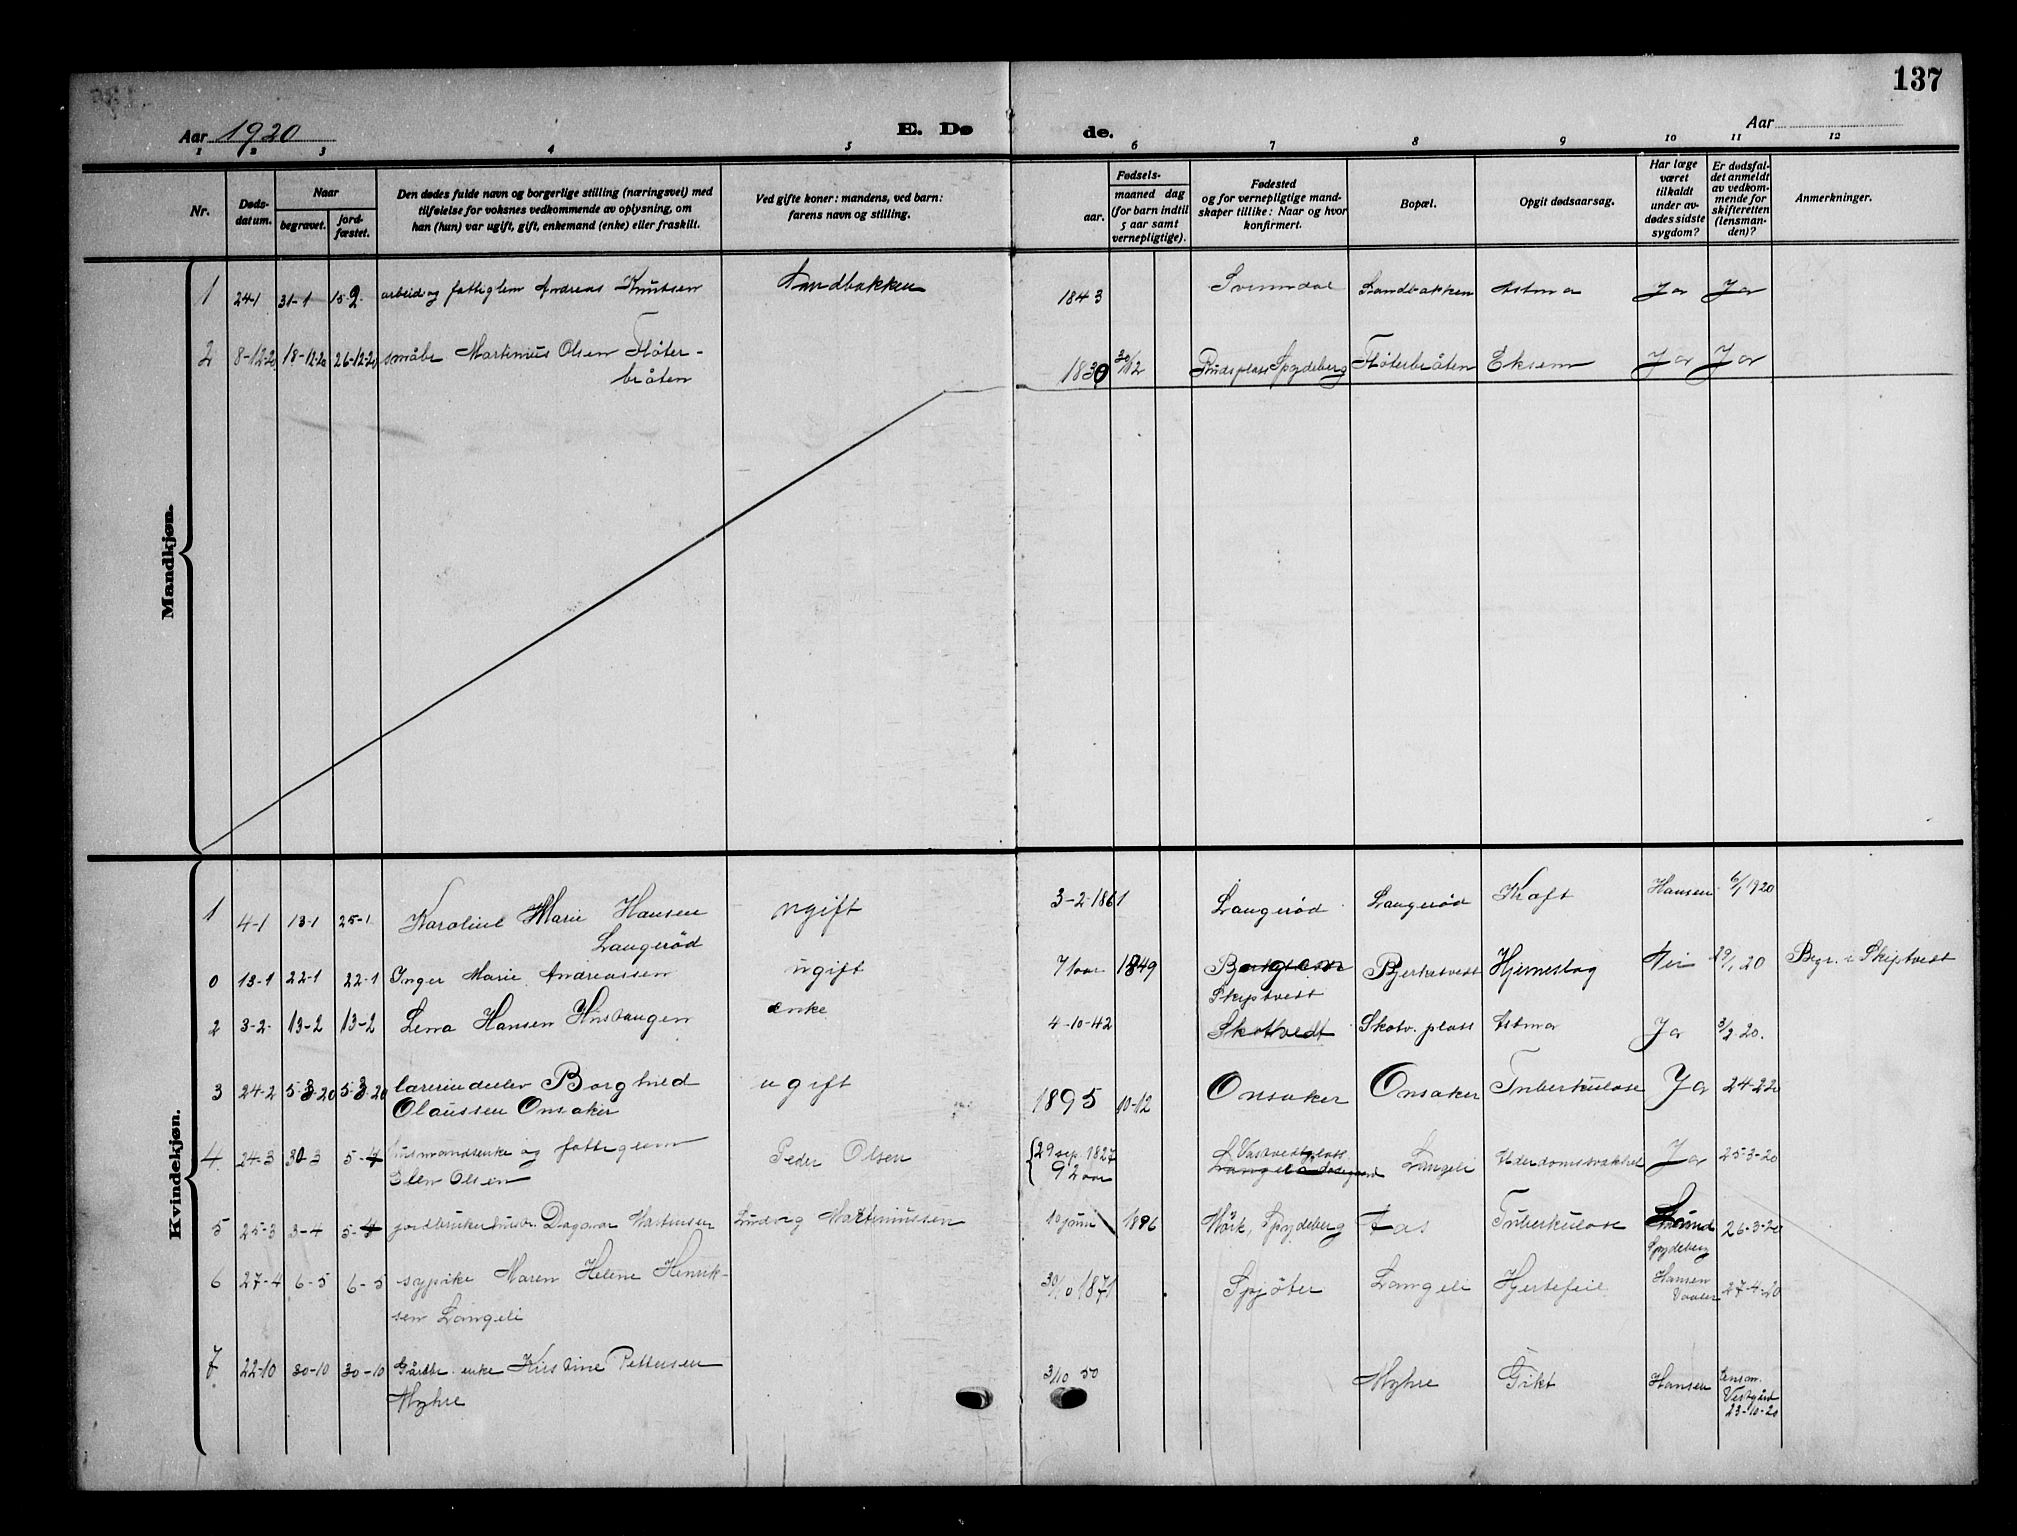 137
Aar 1920
E. Dø
de.
Aar
1 2 3 4 5 6 7 8 9 10 11 12
Nr.
Døds-
datum.
Naar
begravet.
jord-
fæstet.
Den dødes fulde navn og borgerlige stilling (næringsvei) med
tilføielse for voksnes vedkommende av oplysning, om
han (hun) var ugift, gift, enkemand (enke) eller fraskilt.
Ved gifte koner: mandens, ved barn:
farens navn og stilling.
Fødsels-
aar.
maaned dag
(for barn indtil
5 aar samt
vernepligtige).
Fødested
og for vernepligtige mand-
skaper tillike: Naar og hvor
konfirmert.
Bopæl.
Opgit dødsaarsag.
Har læge
været
tilkaldt
under av-
dødes sidste
sygdom?
Er dødsfal-
det anmeldt
av vedkom-
mende for
skifteretten
(lensman-
den)?
Anmerkninger.
Mandkjøn.
1 24-1 31-1 15-2. arbeid og fattiglem Andreas Knutsen Sandbakken 1843 Svinndal Sandbakken Astma Ja Ja
2 8-12-20 18-12-20 26-12-20 småbr Martinius Olsen Fløter-
bråten 1830 30/12 Rudsplass Spydeberg Fløterbråten Eksem Ja Ja
Kvindekjøn.
1 4-1 13-1 25-1 Karoline Marie Hansen
Langerød ugift 3-2-1861 Langerød Langerød Kræft Hansen 6/1 1920
0 13-1 22-1 22-1 Inger Marie Andreassen ugift 71 aar 1849
Skiptvedt Bjerketvedt Hjerneslag Nei 29/1 20 Begr. i Skiptvedt
2 3-2- 13-2 13-2 Lena Hansen enke 4-10-42 Skottvedt Skotv. plass Astma Ja 3/2 20.
3 24-2 5-3-20 5-3-20 lærerindeelev Borghild
Olaussen Onsaker ugift 1895 10-12 Onsaker Onsaker Tuberkulose Ja 24-2 20
4. 24-3 30-3 5-4 husmandsenke og fattiglem
Elen Olsen Peder Olsen 29 sep. 1827
92 aar Langeli Alderdomssvakhet Ja 25-3-20
5 25-3 3-4 5-4 jordbrukerhustr. Dagmar Martinsen Ludvig Martiniussen 10 juni 1896 Mörk, Spydeberg Aas Tuberkulose Lund
Spydeberg 26-3-20
6 27-4 6-5 6-5 sypike Maren Helene Henrik-
sen Langeli 30/10 1871 Spjøter Langeli Hjertefeil Hansen
Vaaler 27-4-20
7 22-10 30-10 30-10 Gårdbr. enke Kirstine Pettersen
Myhre 3/10 50 Myhre Gikt Hansen Lensm.
Vestgård
23-10-20